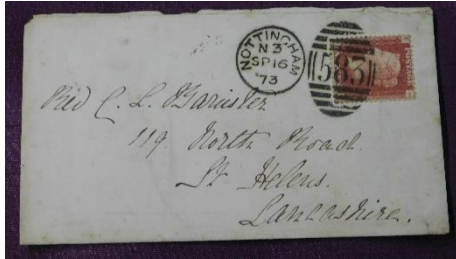 NOTTINGHAM
N 3
SP 16
73
583
Revd C. L. Barister
119 North Road.
St Helens.
Lancashire.